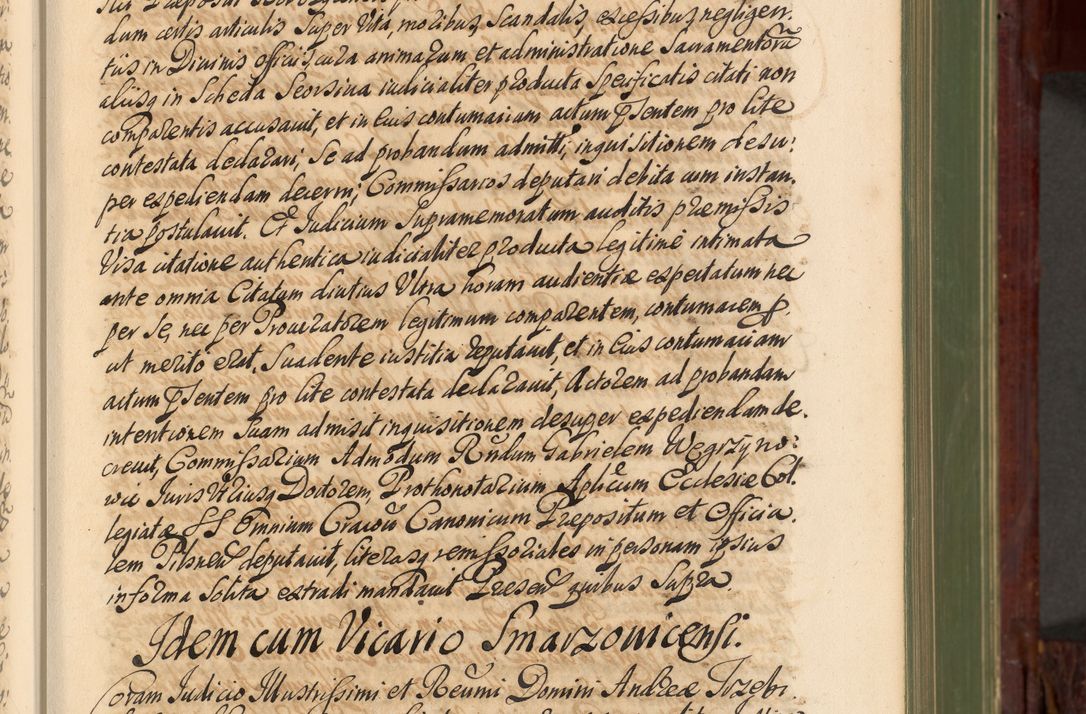 dum certis articulis super Vita, moribus, Scandalis, excessibus, negligen.
tiis in Divinis officiis, cura animarum et administratione Sacramentorũ
aliisq in Scheda Seorsiva iudicialiter producta specificatis citati non
comparentis accusavit, et in eius contumaciam actum pśentem pro lite
contestata declarari, se ad probandum admitti, inquisitionem desu:
per expediendam decerni, Commissarios deputari debita cum instan.
tia postulavit. Et Iudicium Supramemoratum auditis præmissis
Visa citatione authentica iudicialiter producta legitime intimata
ante omnia Citatum diutius Ultra horam audientiæ expectatum nec
per se, nec per Procuratorem legitimum comparentem, contumacem p.
ut merito erat, suadente iustitia reputavit, et in eius contumaciam
actum pśentem pro lite contestata declaravit, Actorem ad probandam
intentionem suam admisit inquisitionem desuper expediendam de.
crevit, Commissarium Admodum Rńdum Gabrielem Wegrzyno:
wic Iuris Utriusq Doctorem, Prothonotarium Aplicum Ecclesiæ Col.
legiatæ SS Omnium Cracov Canonicum Præpositum et Officia.
lem Pilsneń deputavit, literasq remissoriales in personam ipsius
in forma solita extradi mandavit Præseń quibus supra.
Idem cum Vicario Smarzovicensi.
Coram Iudicio Illustrissimi et Reũmi Domini Andreæ Trzebi.